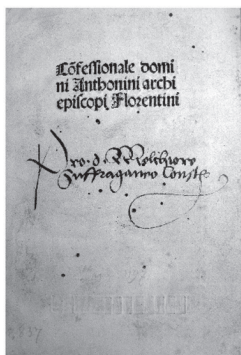 Cõfessionale domi
ni Anthonini archi
episcopi Florentini
Pro. d. Melchiore
Suffraganeo Const